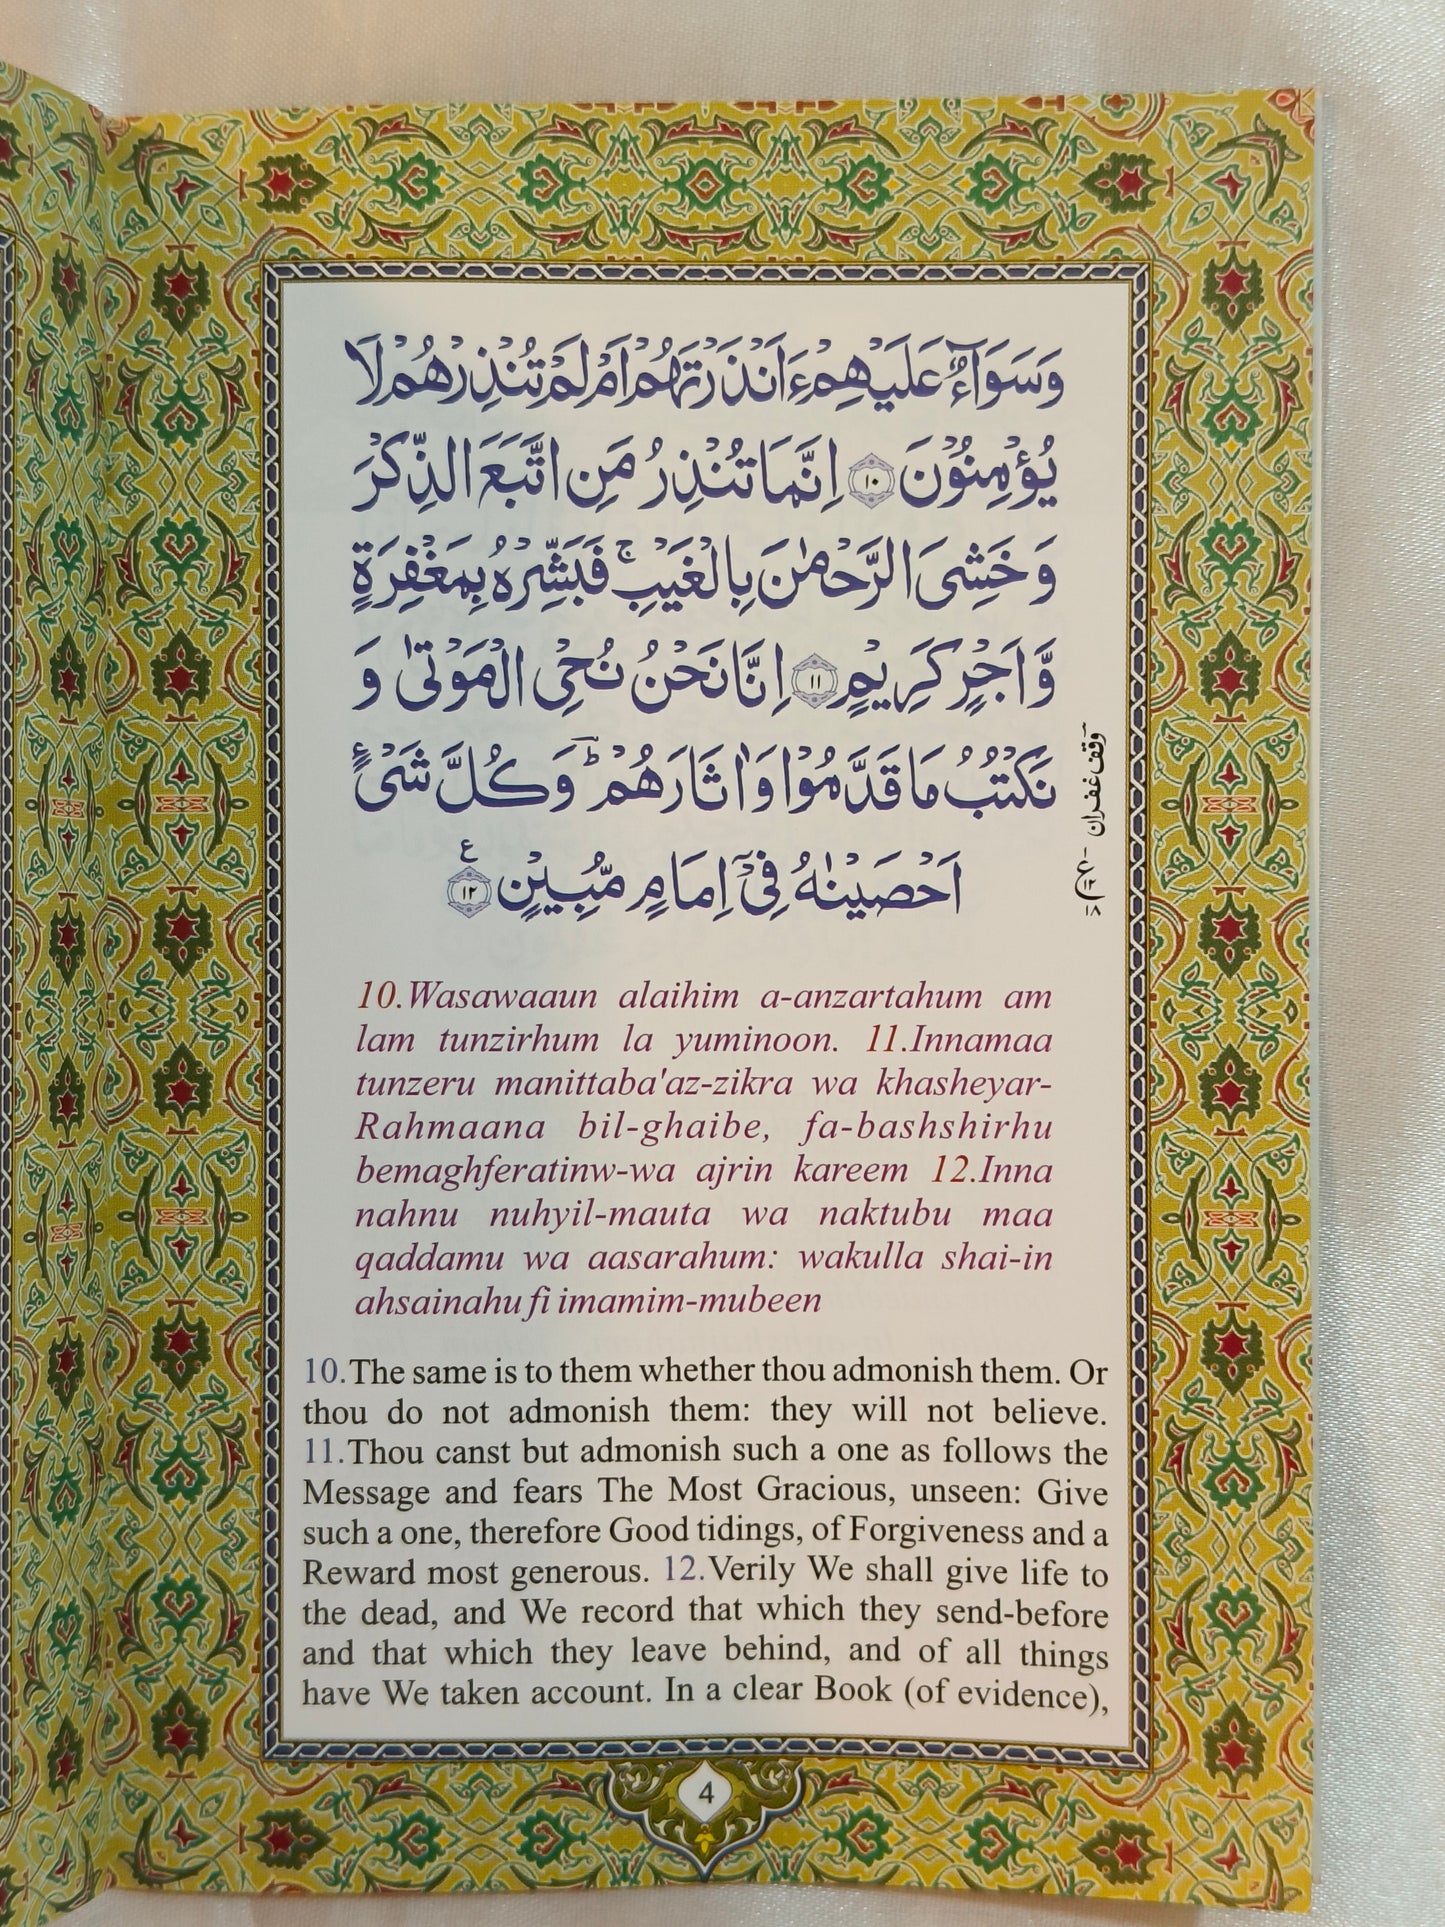 وَسَوَآءٌ عَلَيْهِمْ ءَاَنْذَرْتَهُمْ اَمْ لَمْ تُنْذِرْهُمْ لَا
يُؤْمِنُوْنَ ۝۱۰ اِنَّمَا تُنْذِرُ مَنِ اتَّبَعَ الذِّكْرَ
وَ خَشِيَ الرَّحْمٰنَ بِالْغَيْبِ ۚ فَبَشِّرْهُ بِمَغْفِرَةٍ
وَّ اَجْرٍ كَرِيْمٍ ۝۱۱ اِنَّا نَحْنُ نُحْيِ الْمَوْتٰى وَ
نَكْتُبُ مَا قَدَّمُوْا وَ اٰثَارَهُمْ ؕ وَ كُلَّ شَيْءٍ
اَحْصَيْنٰهُ فِيْۤ اِمَامٍ مُّبِيْنٍ ۝۱۲ ع
وقف غفران
ع ۱۲ ۱۸
10.Wasawaaun alaihim a-anzartahum am
lam tunzirhum la yuminoon. 11.Innamaa
tunzeru manittaba'az-zikra wa khasheyar-
Rahmaana bil-ghaibe, fa-bashshirhu
bemaghferatinw-wa ajrin kareem 12.Inna
nahnu nuhyil-mauta wa naktubu maa
qaddamu wa aasarahum: wakulla shai-in
ahsainahu fi imamim-mubeen
10.The same is to them whether thou admonish them. Or
thou do not admonish them: they will not believe.
11.Thou canst but admonish such a one as follows the
Message and fears The Most Gracious, unseen: Give
such a one, therefore Good tidings, of Forgiveness and a
Reward most generous. 12.Verily We shall give life to
the dead, and We record that which they send-before
and that which they leave behind, and of all things
have We taken account. In a clear Book (of evidence),
4